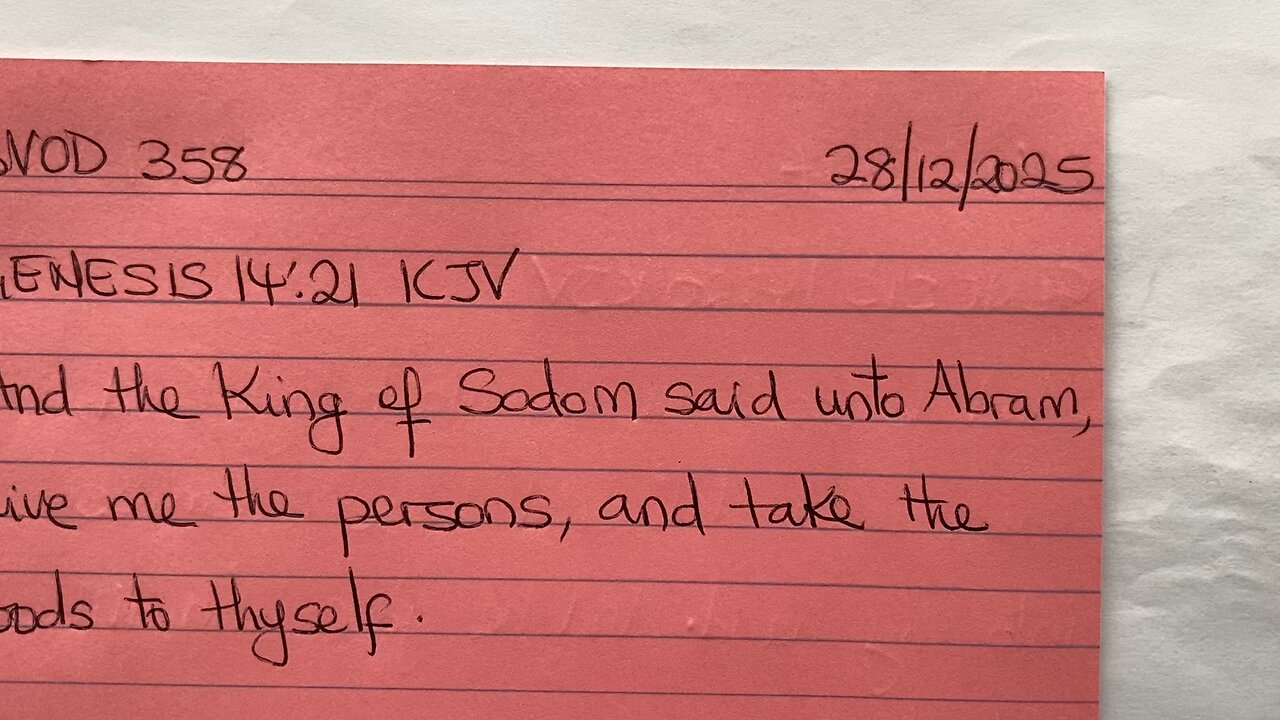 VOD 358 28/12/2025
GENESIS 14:21 KJV
And the King of Sodom said unto Abram,
Give me the persons, and take the
goods to thyself.